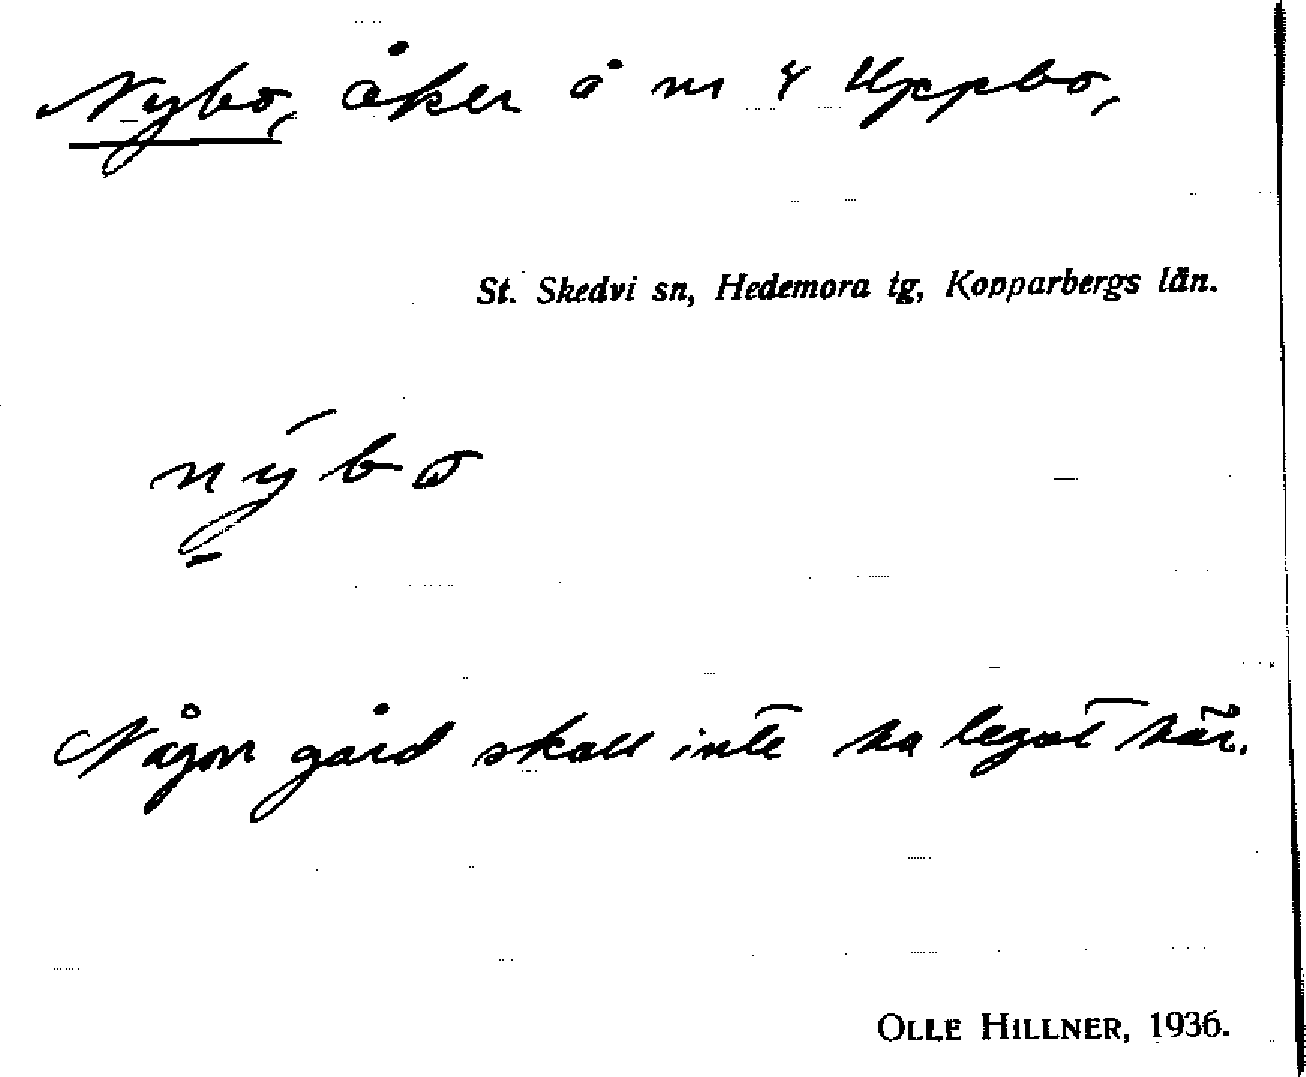 Nybo, åker å nr 8 Uppbo,
St. Skedvi sn, Hedemora tg, Kopparbergs län.
nýbo
Någon gård skall inte ha legat här.
OLLE HILLNER, 1936.